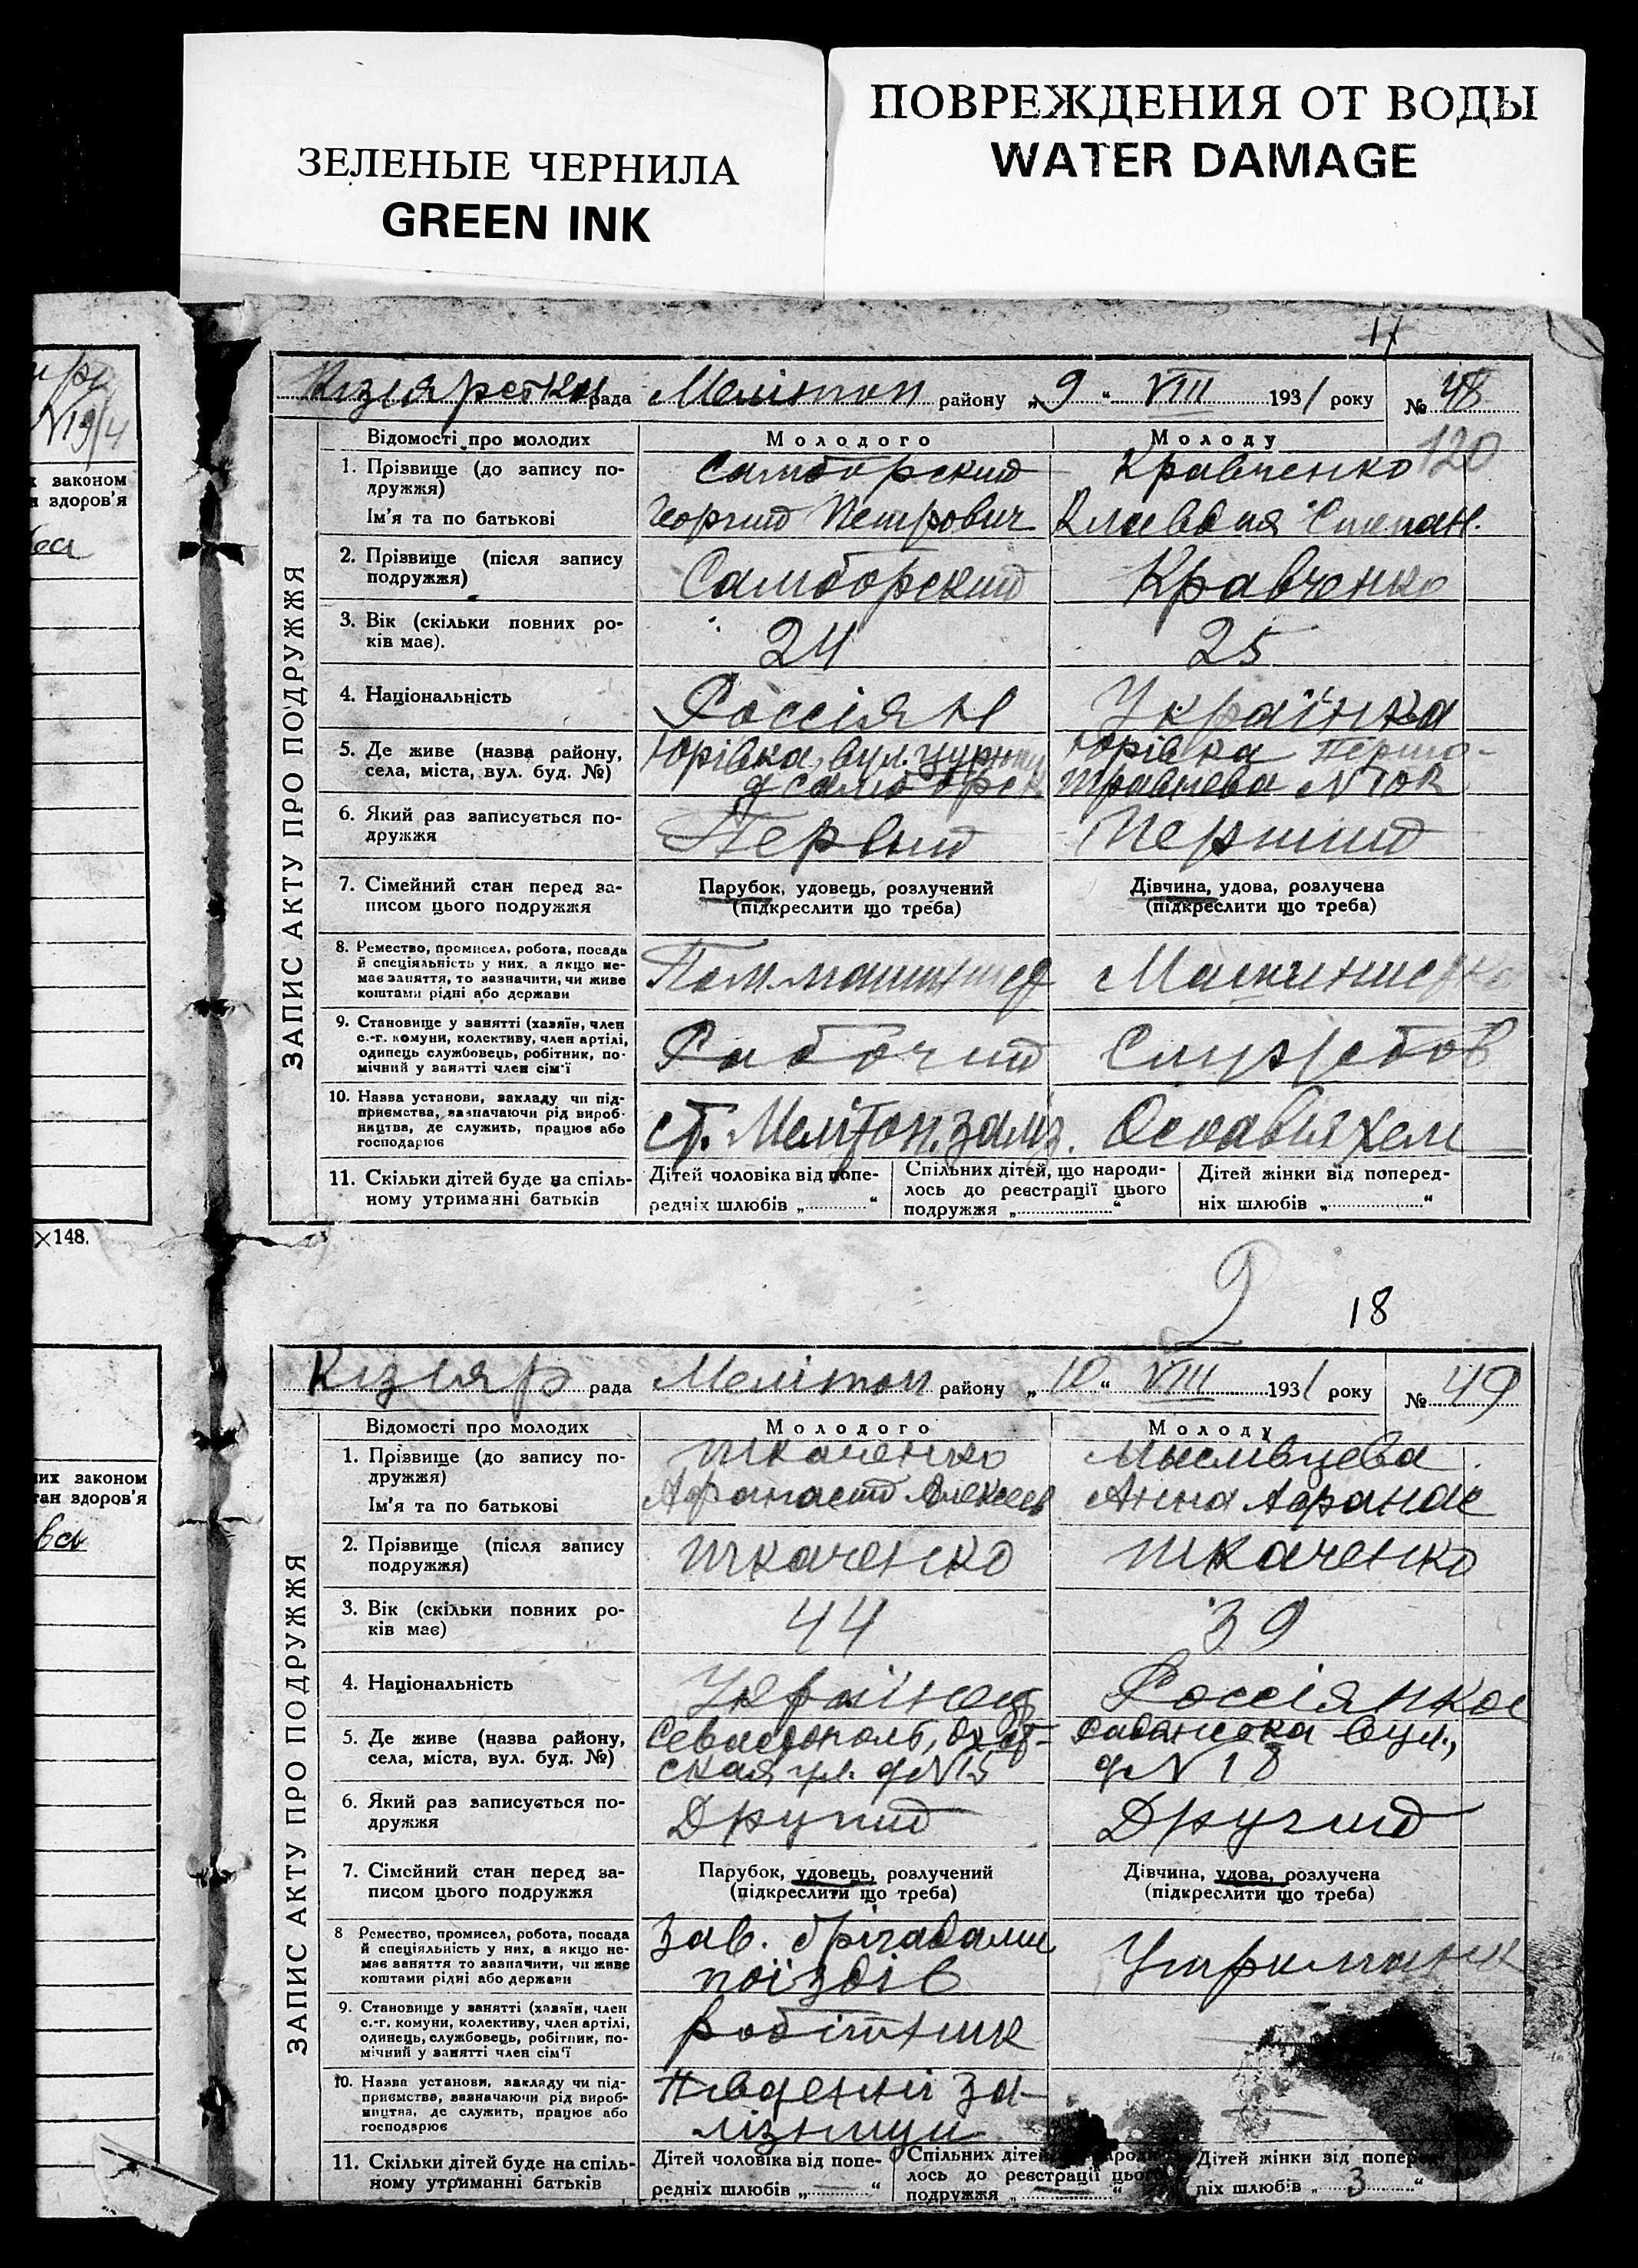 ЗЕЛЕНЫЕ ЧЕРНИЛА
GREEN INK
ПОВРЕЖДЕНИЯ ОТ ВОДЫ
WATER DAMAGE
17
N19/4
законом
здоров'я
×148.
их законом
тан здоров'я
рада Мелітоп району „9“ VIII 1931 року № 48
120
ЗАПИС АКТУ ПРО ПОДРУЖЖЯ
Відомості про молодих Молодого Молоду
1. Прізвище (до запису по-
дружжя) Самборский Кравченко
Ім'я та по батькові Георгий Петрович Клавдия Степан.
2. Прізвище (після запису
подружжя) Самборский Кравченко
3. Вік (скільки повних ро-
ків має). 24 25
4. Національність Россіян Українка
5. Де живе (назва району,
села, міста, вул. буд. №) Юрівка, вул. Юрівка Першо-
д Самборск травнева N 10
6. Який раз записується по-
дружжя Первый Перший
7. Сімейний стан перед за-
писом цього подружжя
Парубок, удовець, розлучений
(підкреслити що треба)
Дівчина, удова, розлучена
(підкреслити що треба)
8. Ремество, промисел, робота, посада
й спеціяльність у них, а якщо не-
має заняття, то зазначити, чи живе
коштами рідні або держави
Пом. машинист Машинистка
9. Становище у занятті (хазяїн, член
с.-г. комуни, колективу, член артілі,
одинець службовець, робітник, по-
мічний у занятті член сім'ї
Рабочий Службов
10. Назва установи, закладу чи під-
приємства, зазначаючи рід вироб-
ництва, де служить, працює або
господарює
ст. Мелітоп. заліз. Осоавияхем
11. Скільки дітей буде на спіль-
ному утриманні батьків
Дітей чоловіка від попе-
редніх шлюбів „ “
Спільних дітей, що народи-
лось до реєстрації цього
подружжя „ “
Дітей жінки від поперед-
ніх шлюбів „ “
2
18
Кізіяр рада Мелітоп району „10“ VIII 1931 року № 49
ЗАПИС АКТУ ПРО ПОДРУЖЖЯ
Відомості про молодих Молодого Молоду
1. Прізвище (до запису по-
дружжя) Ткаченко Мысливцева
Ім'я та по батькові Афанасий Алексеев Анна Афанас
2. Прізвище (після запису
подружжя) Ткаченко Ткаченко
3. Вік (скільки повних ро-
ків має) 44 39
4. Національність Українец Россіянка
5. Де живе (назва району,
села, міста, вул. буд. №) Севастополь, вул.,
ская ул. д N 15 д N 18
6. Який раз записується по-
дружжя Другий Другий
7. Сімейний стан перед за-
писом цього подружжя
Парубок, удовець, розлучений
(підкреслити що треба)
Дівчина, удова, розлучена
(підкреслити що треба)
8 Ремество, промисел, робота, посада
й спеціяльність у них, а якщо не-
має заняття то зазначити, чи живе
коштами рідні або держави
Зав. брігадами
поїздів
Утриманк
9. Становище у занятті (хазяїн, член
с.-г. комуни, колективу, член артілі,
одинець, службовець, робітник, по-
мічний у занятті член сім'ї
робітник
10. Назва установи, закладу чи під-
приємства, зазначаючи рід вироб-
ництва, де служить, працює або
господарює
Південні за-
лізниці
11. Скільки дітей буде на спіль-
ному утриманні батьків
Дітей чоловіка від попе-
редніх шлюбів „—“
Спільних дітей
лось до реєстрації цього
подружжя „—“
Дітей жінки від поперед-
ніх шлюбів „3“